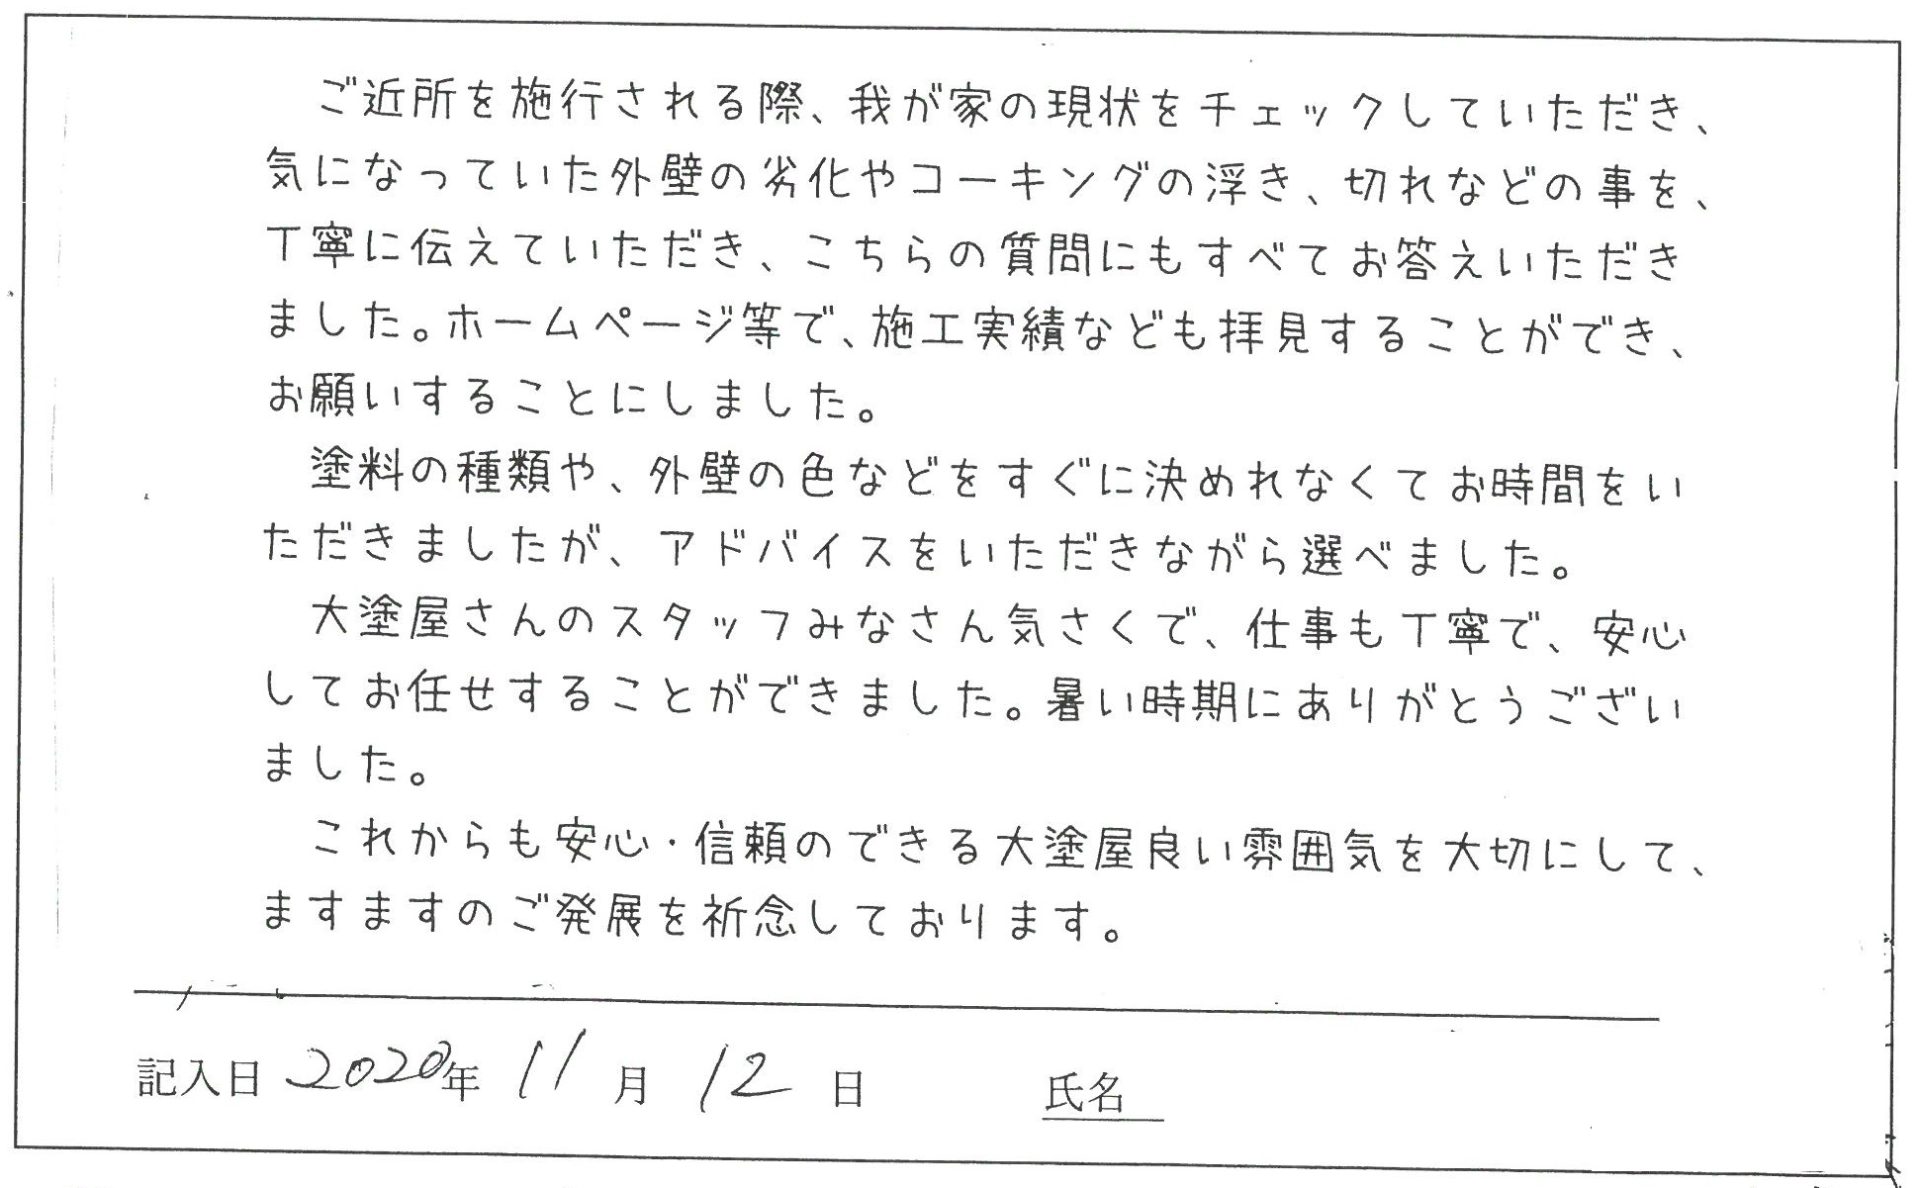 ご近所を施行される際、我が家の現状をチェックしていただき、
気になっていた外壁の劣化やコーキングの浮き、切れなどの事を、
丁寧に伝えていただき、こちらの質問にもすべてお答えいただき
ました。ホームページ等で、施工実績なども拝見することができ、
お願いすることにしました。
塗料の種類や、外壁の色などをすぐに決めれなくてお時間をい
ただきましたが、アドバイスをいただきながら選べました。
大塗屋さんのスタッフみなさん気さくで、仕事も丁寧で、安心
してお任せすることができました。暑い時期にありがとうござい
ました。
これからも安心・信頼のできる大塗屋良い雰囲気を大切にして、
ますますのご発展を祈念しております。
記入日 2020年 11月 12日 氏名